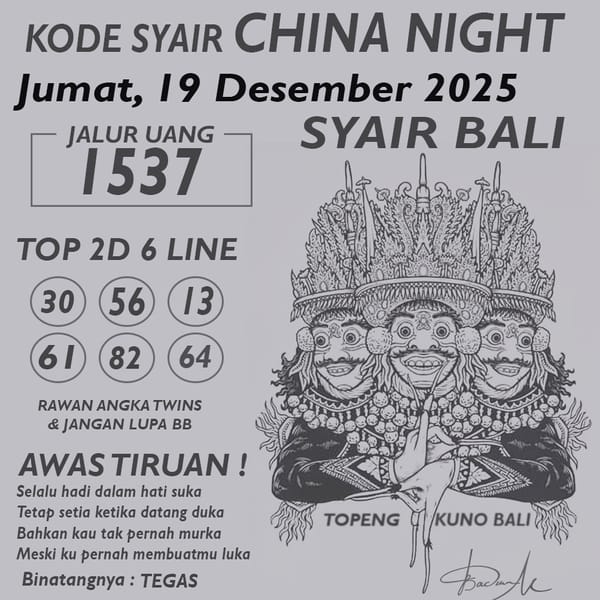 KODE SYAIR CHINA NIGHT
Jumat, 19 Desember 2025
JALUR UANG
SYAIR BALI
1537
TOP 2D 6 LINE
30 56 13
61 82 64
RAWAN ANGKA TWINS
& JANGAN LUPA BB
AWAS TIRUAN !
Selalu hadi dalam hati suka
Tetap setia ketika datang duka
Bahkan kau tak pernah murka
Meski ku pernah membuatmu luka
Binatangnya : TEGAS
TOPENG KUNO BALI